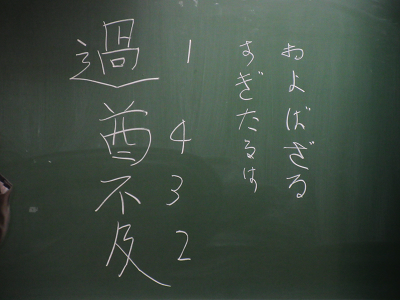 およばざる
すぎたるは
1432
過酋不及